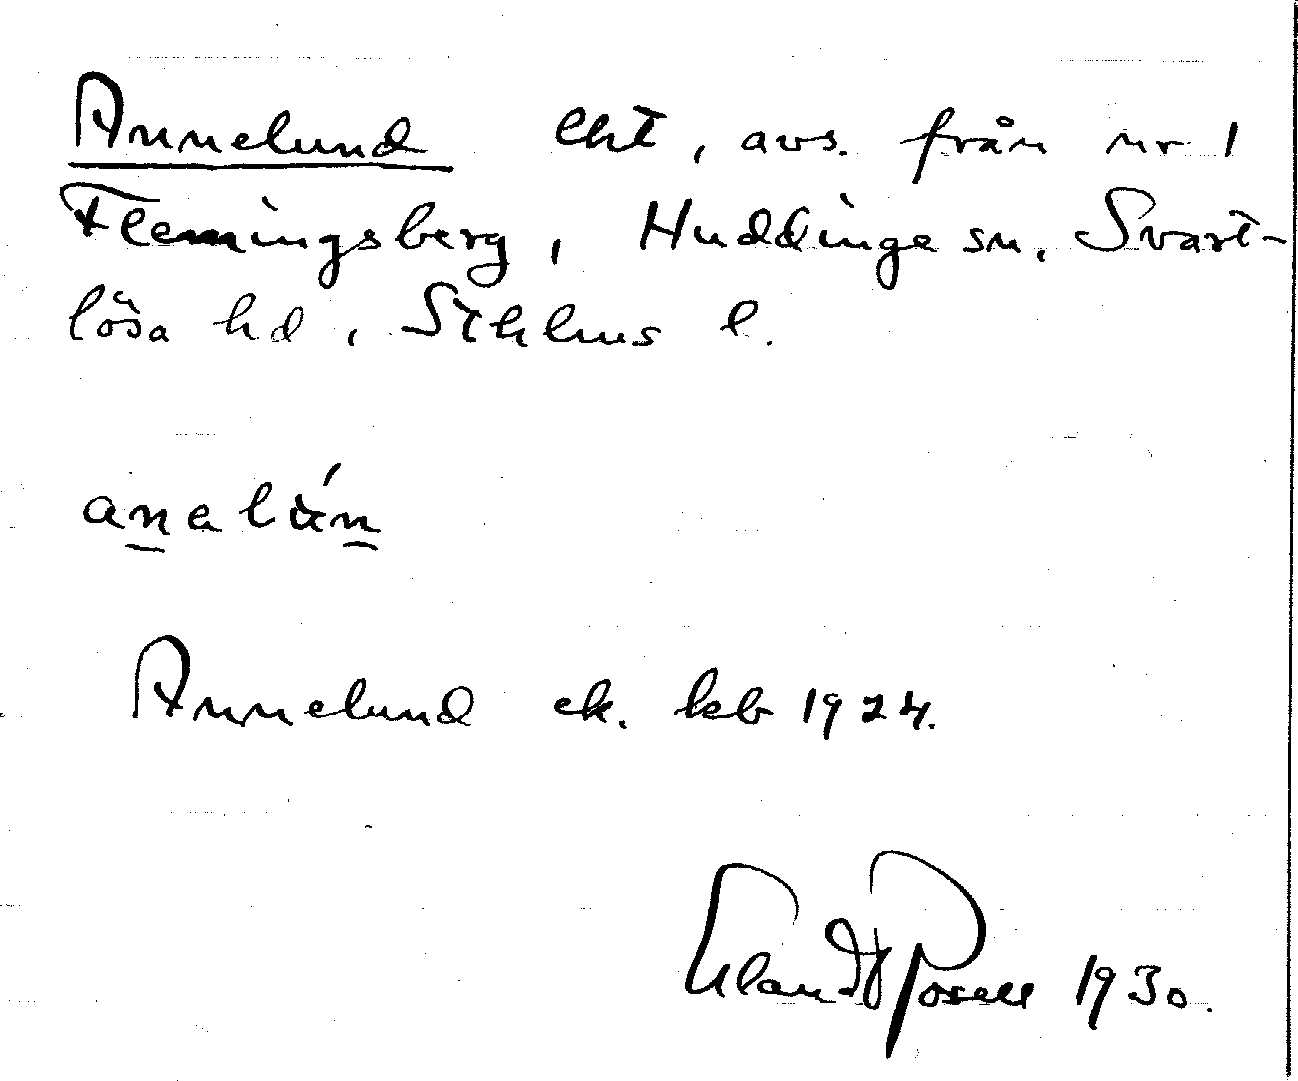 Annelund lht, avs. från nr 1
Flemingsberg, Huddinge sn. Svart-
lösa hd, Sthlms l.
anelún
Annelund ek. kb 1924.
Erland Rosell 1930.